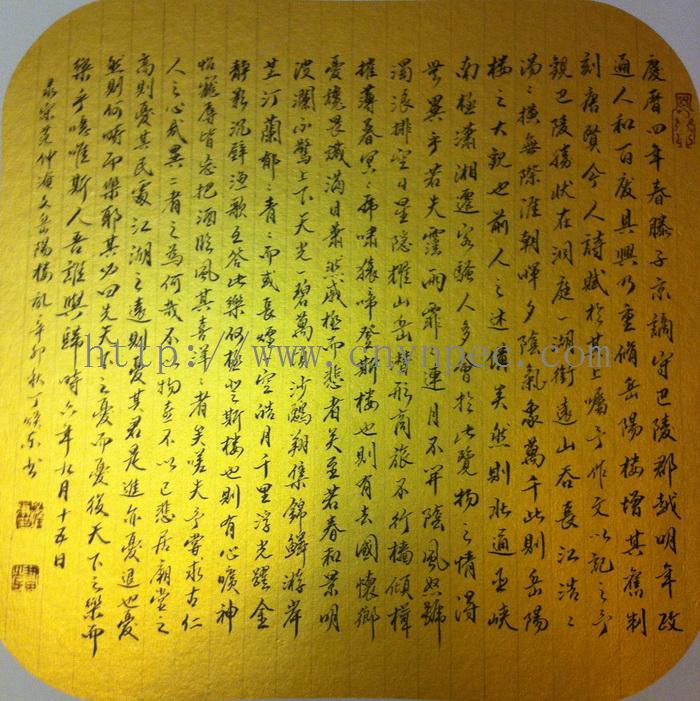 慶曆四年春滕子京謫守巴陵郡越明年政
通人和百廢具興乃重脩岳陽樓增其舊制
刻唐賢今人詩賦於其上囑予作文以記之予
觀巴陵勝狀在洞庭一湖銜遠山吞長江浩〻
湯〻橫無際涯朝暉夕陰氣象萬千此則岳陽
樓之大觀也前人之述備矣然則北通巫峽
南極瀟湘遷客騷人多會於此覽物之情得
無異乎若夫霪雨霏〻連月不開陰風怒號
濁浪排空日星隱耀山岳潛形商旅不行檣傾楫
摧薄暮冥〻虎嘯猿啼登斯樓也則有去國懷鄉
憂讒畏譏滿目蕭然感極而悲者矣至若春和景明
波瀾不驚上下天光一碧萬頃沙鷗翔集錦鱗游岸
芷汀蘭郁〻青〻而或長煙一空皓月千里浮光躍金
靜影沉璧漁歌互答此樂何極登斯樓也則有心曠神
怡寵辱皆忘把酒臨風其喜洋〻者矣嗟夫予嘗求古仁
人之心或異二者之為何哉不以物喜不以己悲居廟堂之
高則憂其民處江湖之遠則憂其君是進亦憂退也憂
然則何時而樂耶其必曰先天下之憂而憂後天下之樂而
樂乎噫唯斯人吾誰與歸時六年九月十五日
录宋范仲淹文岳陽樓記辛卯秋丁東书
http://www.cnynpec.com